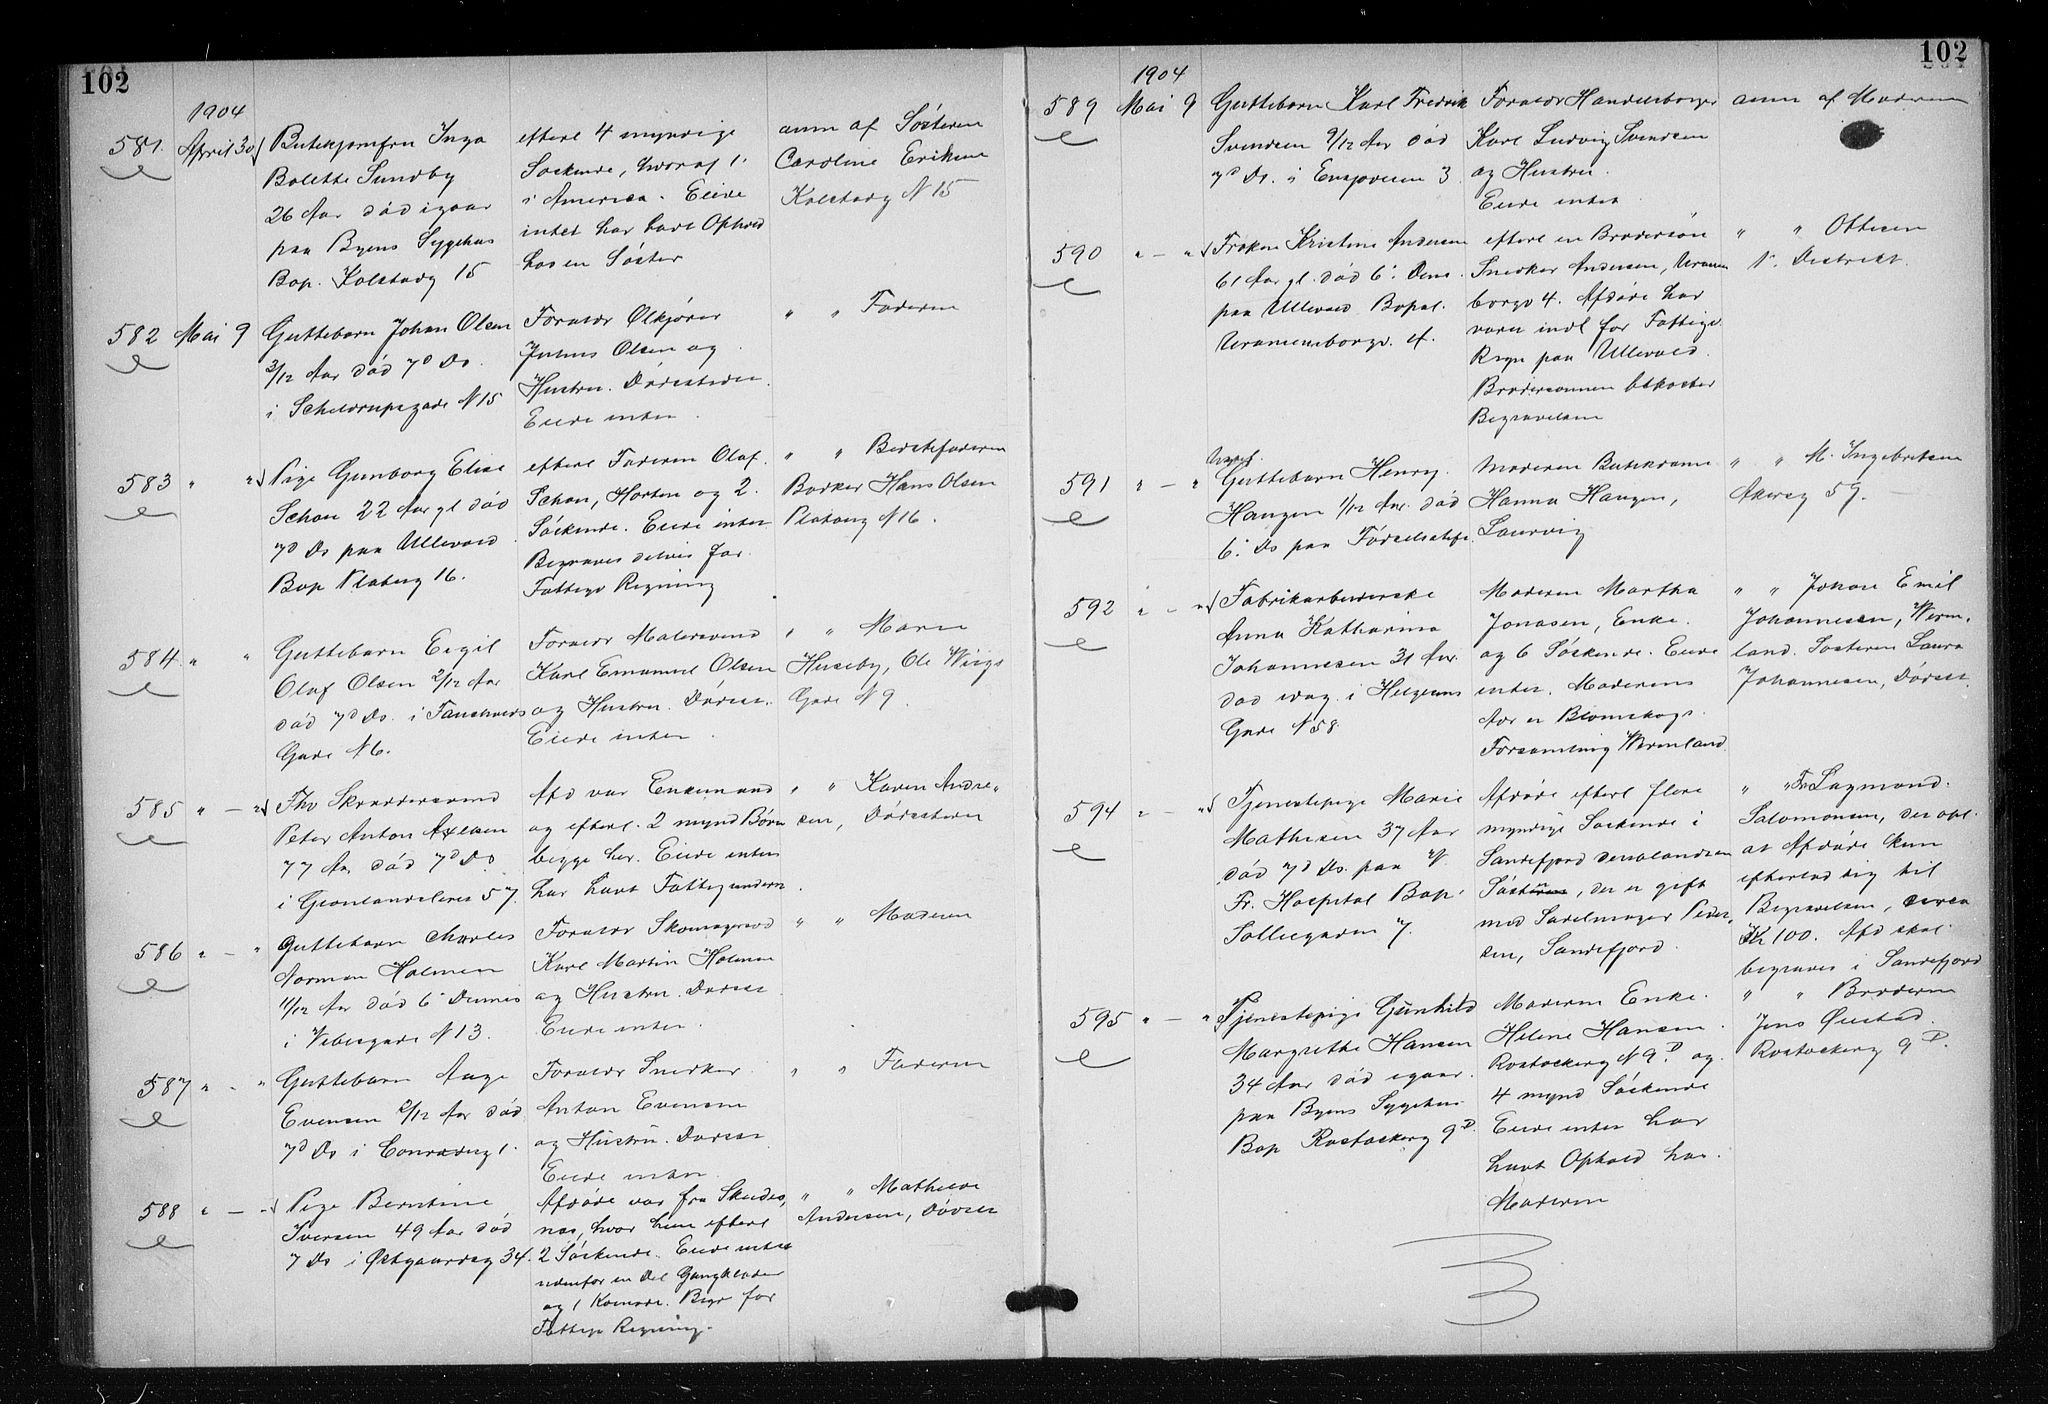 102
1904
581. April 30 Butikjomfru Inga
Bolette Sundby
26 Aar død igaar
paa Byens Sygehus
Bop. Kolstadg 15
efterl 4 myndige
Søskende, hvoraf 1
i America. Eiede
intet har havt Ophold
hos en Søster
anm af Søsteren
Caroline Eriksen
Kolstadg N 15
582 Mai 9 Guttebarn Johan Olsen
3/12 Aar død 7d Ds.
i Scheldrupsgade N 15
Foraldr Ølkjører
Julius Olsen og
Hustru. Dødsstedet.
Eiede intet.
" " Faderen
583 " " Pige Gunborg Elise
Schou 22 Aar gl død
7d Ds paa Ullevold
Bop Platoug 16.
efterl Faderen Olaf
Schou, Horten og 2
Søskende. Eiede intet
Begraves delvis for
Fattigv Regning
" " Bedstefaderen
Barker Hans Olsen
Platoug N 16.
584 " " Guttebarn Eigil
Olaf Olsen 2/12 Aar
død 7d Ds. i Fauchalds
Gade N 6.
Foraldr Malersvend
Karl Emanuel Olsen
og Hustru. Dødsst.
Eiede intet.
" " Maren
Huseby, Ole Wiigs
Gade N 9.
585 " — " Fhv Skræddersvend
Peter Anton Axelsen
77 Aar død 7d Ds
i Grønlandsleret 57.
Afd var Enkemand
og efterl. 2 mynd Børn
begge her. Eiede intet
har havt Fattigunderst.
" " Karen Andre-
sen, Dødsstedet
586 " — " Guttebarn Charles
Norman Holmen
11/12 Aar død 6 Dennes
i Vibesgade N 13.
Foraldr Skomagersvd
Karl Martin Holmen
og Hustru. Dødsst
Eiede intet.
" " Moderen
587 " - " Guttebarn Aage
Evensen 2/12 Aar død
7d Ds i Conradsg 1.
Foraldr Snedker
Anton Evensen
og Hustru. Dødsst
Eiede intet.
" " Faderen
588 " — " Pige Berntine
Iversen 49 Aar død
7 Ds i Østgaardsg 34.
Afdøde var fra Skudes-
nes, hvor hun efterl
2 Søskende. Eiede intet
udenfor en Del Gangklæder
og 1 Komode. Begr for
Fattigv Regning.
" " Mathilde
Andersen, Dødsst
102
1904
589 Mai 9 Guttebarn Karl Fredrik
Svendsen 9/12 Aar død
7d Ds. i Ensjøveien 3
Foraldr Handelsborger
Karl Ludvig Svendsen
og Hustru.
Eiede intet
anm af Moderen
590 " — " Frøken Kristine Andersen
61 Aar gl. død 6 Dens
paa Ullevold Bopal.
Uranienborgv. 4.
efterl en Brodersøn
Snedker Andersen, Uranien
borgv 4. Afdøde har
været indl for Fattigv
Regn paa Ullevold.
Brodersønnen bekoster
Begravelsen
" " Ottesen
1. Distrikt.
591 " — " Guttebarn Henry
Haugen 1/12 Aar død
6 Ds paa Fødselsstift
Moderen Butikdame
Hanna Haugen,
Laurvig
" " M. Ingebretsen
Akersg 59. —
592 " — " Fabrikarbeiderske
Anna Katharina
Johannesen 31 Aar
død idag i Helgesens
Gade N 58
Moderen Martha
Jonasen, Enke.
og 6 Søskende. Eiede
intet. Moderens
Adr er Blomskogs
Forsamling Wermland
" " Johan Emil
Johannesen, Werm-
land. Søsteren Laura
Johannesen, Dødsst.
594 " — " Tjenestepige Marie
Mathisen 37 Aar
død 7d Ds. paa V.
Fr. Hospital Bop.
Solliegaden 7.
Afdøde efterl flere
myndige Søskende i
Sandefjord deriblandt en
Søster, der er gift
med Sadelmager Peder-
sen, Sandefjord.
" " Fr Lagmand
Salomonsen, der opl.
at Afdøde kun
efterlod sig til
Begravelsen, circa
Kr 100. Afd skal
begraves i Sandefjord
595 " — " Tjenestepige Gunhild
Margrethe Hansen
34 Aar død igaar
paa Byens Sygehus
Bop Rostockerg 9d
Moderen Enke
Helene Hansen
Rostockerg N 9d og
4 mynd Søskende
Eiede intet har
havt Ophold hos
Moderen
" " Broderen
Jens Østad
Rostockerg 9d.